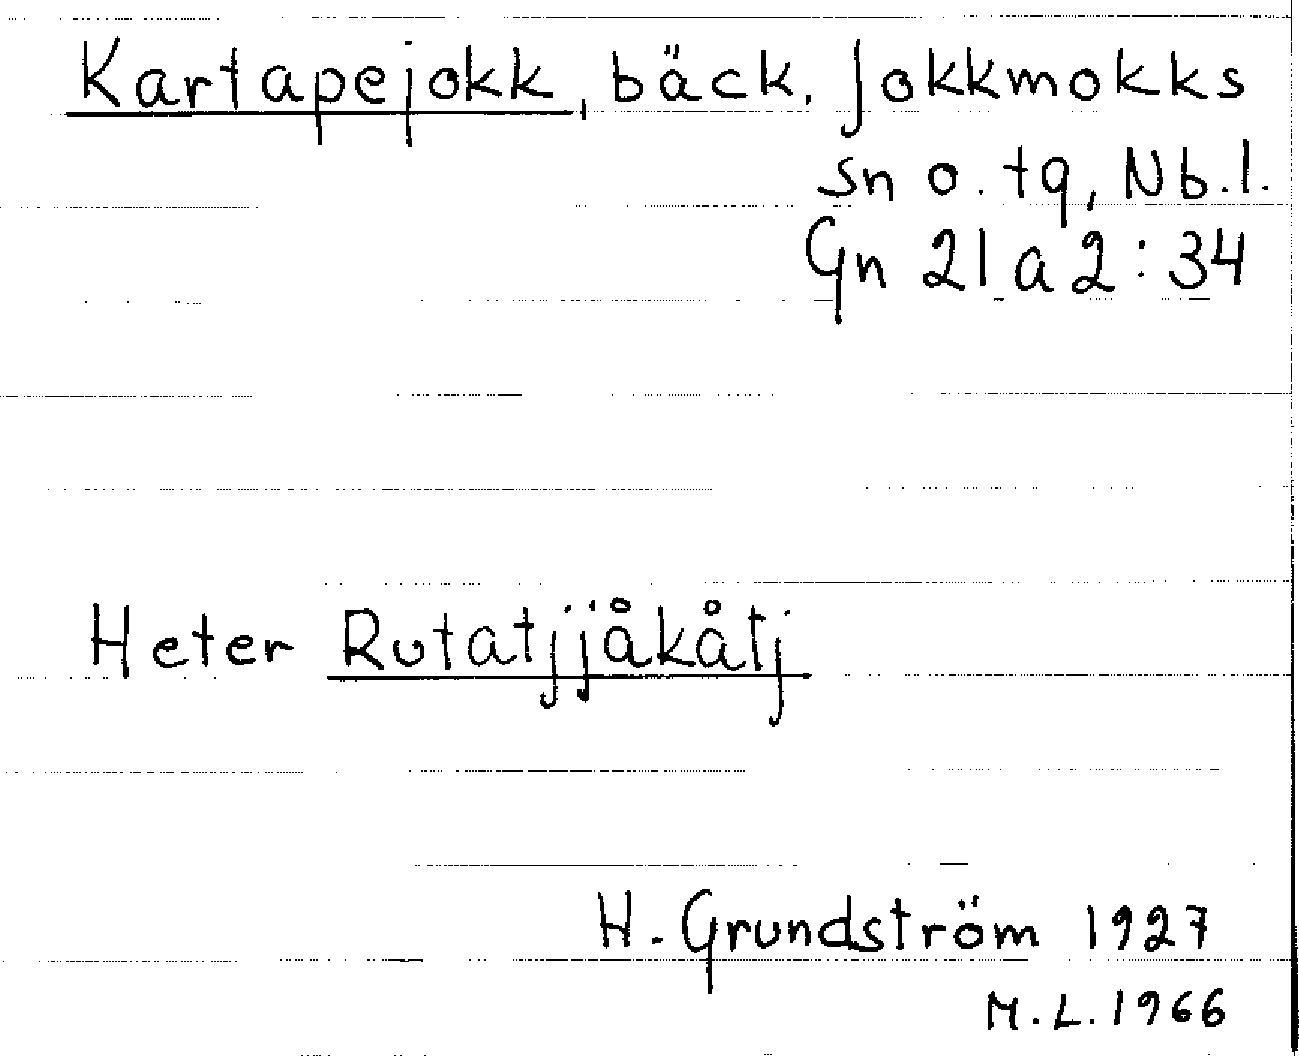 Kartapejokk, bäck. Jokkmokks
sn o. tg, Nb.l.
Gn 21 a 2:34
Heter Rutatjjåkåtj
H. Grundström 1927
M.L. 1966